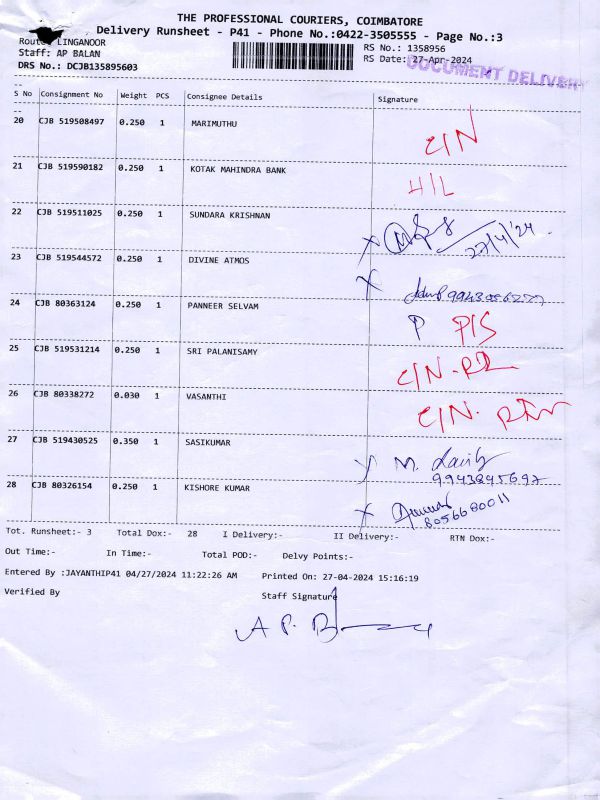 THE PROFESSIONAL COURIERS, COIMBATORE
Delivery Runsheet - P41 - Phone No.:0422-3505555 - Page No.:3
Route: LINGANOOR RS No.: 1358956
Staff: AP BALAN RS Date: 27-Apr-2024
DRS No.: DCJB135895603 DOCUMENT DELIVERY
S No Consignment No Weight PCS Consignee Details Signature
20 CJB 519508497 0.250 1 MARIMUTHU C/N
21 CJB 519590182 0.250 1 KOTAK MAHINDRA BANK H/L
22 CJB 519511025 0.250 1 SUNDARA KRISHNAN 27/4/24
23 CJB 519544572 0.250 1 DIVINE ATMOS
24 CJB 80363124 0.250 1 PANNEER SELVAM P P/S
25 CJB 519531214 0.250 1 SRI PALANISAMY C/N.
26 CJB 80338272 0.030 1 VASANTHI C/N.
27 CJB 519430525 0.350 1 SASIKUMAR M.
9943895697
28 CJB 80326154 0.250 1 KISHORE KUMAR
8056680011
Tot. Runsheet:- 3 Total Dox:- 28 I Delivery:- II Delivery:- RTN Dox:-
Out Time:- In Time:- Total POD:- Delvy Points:-
Entered By :JAYANTHIP41 04/27/2024 11:22:26 AM Printed On: 27-04-2024 15:16:19
Verified By Staff Signature
A P. B